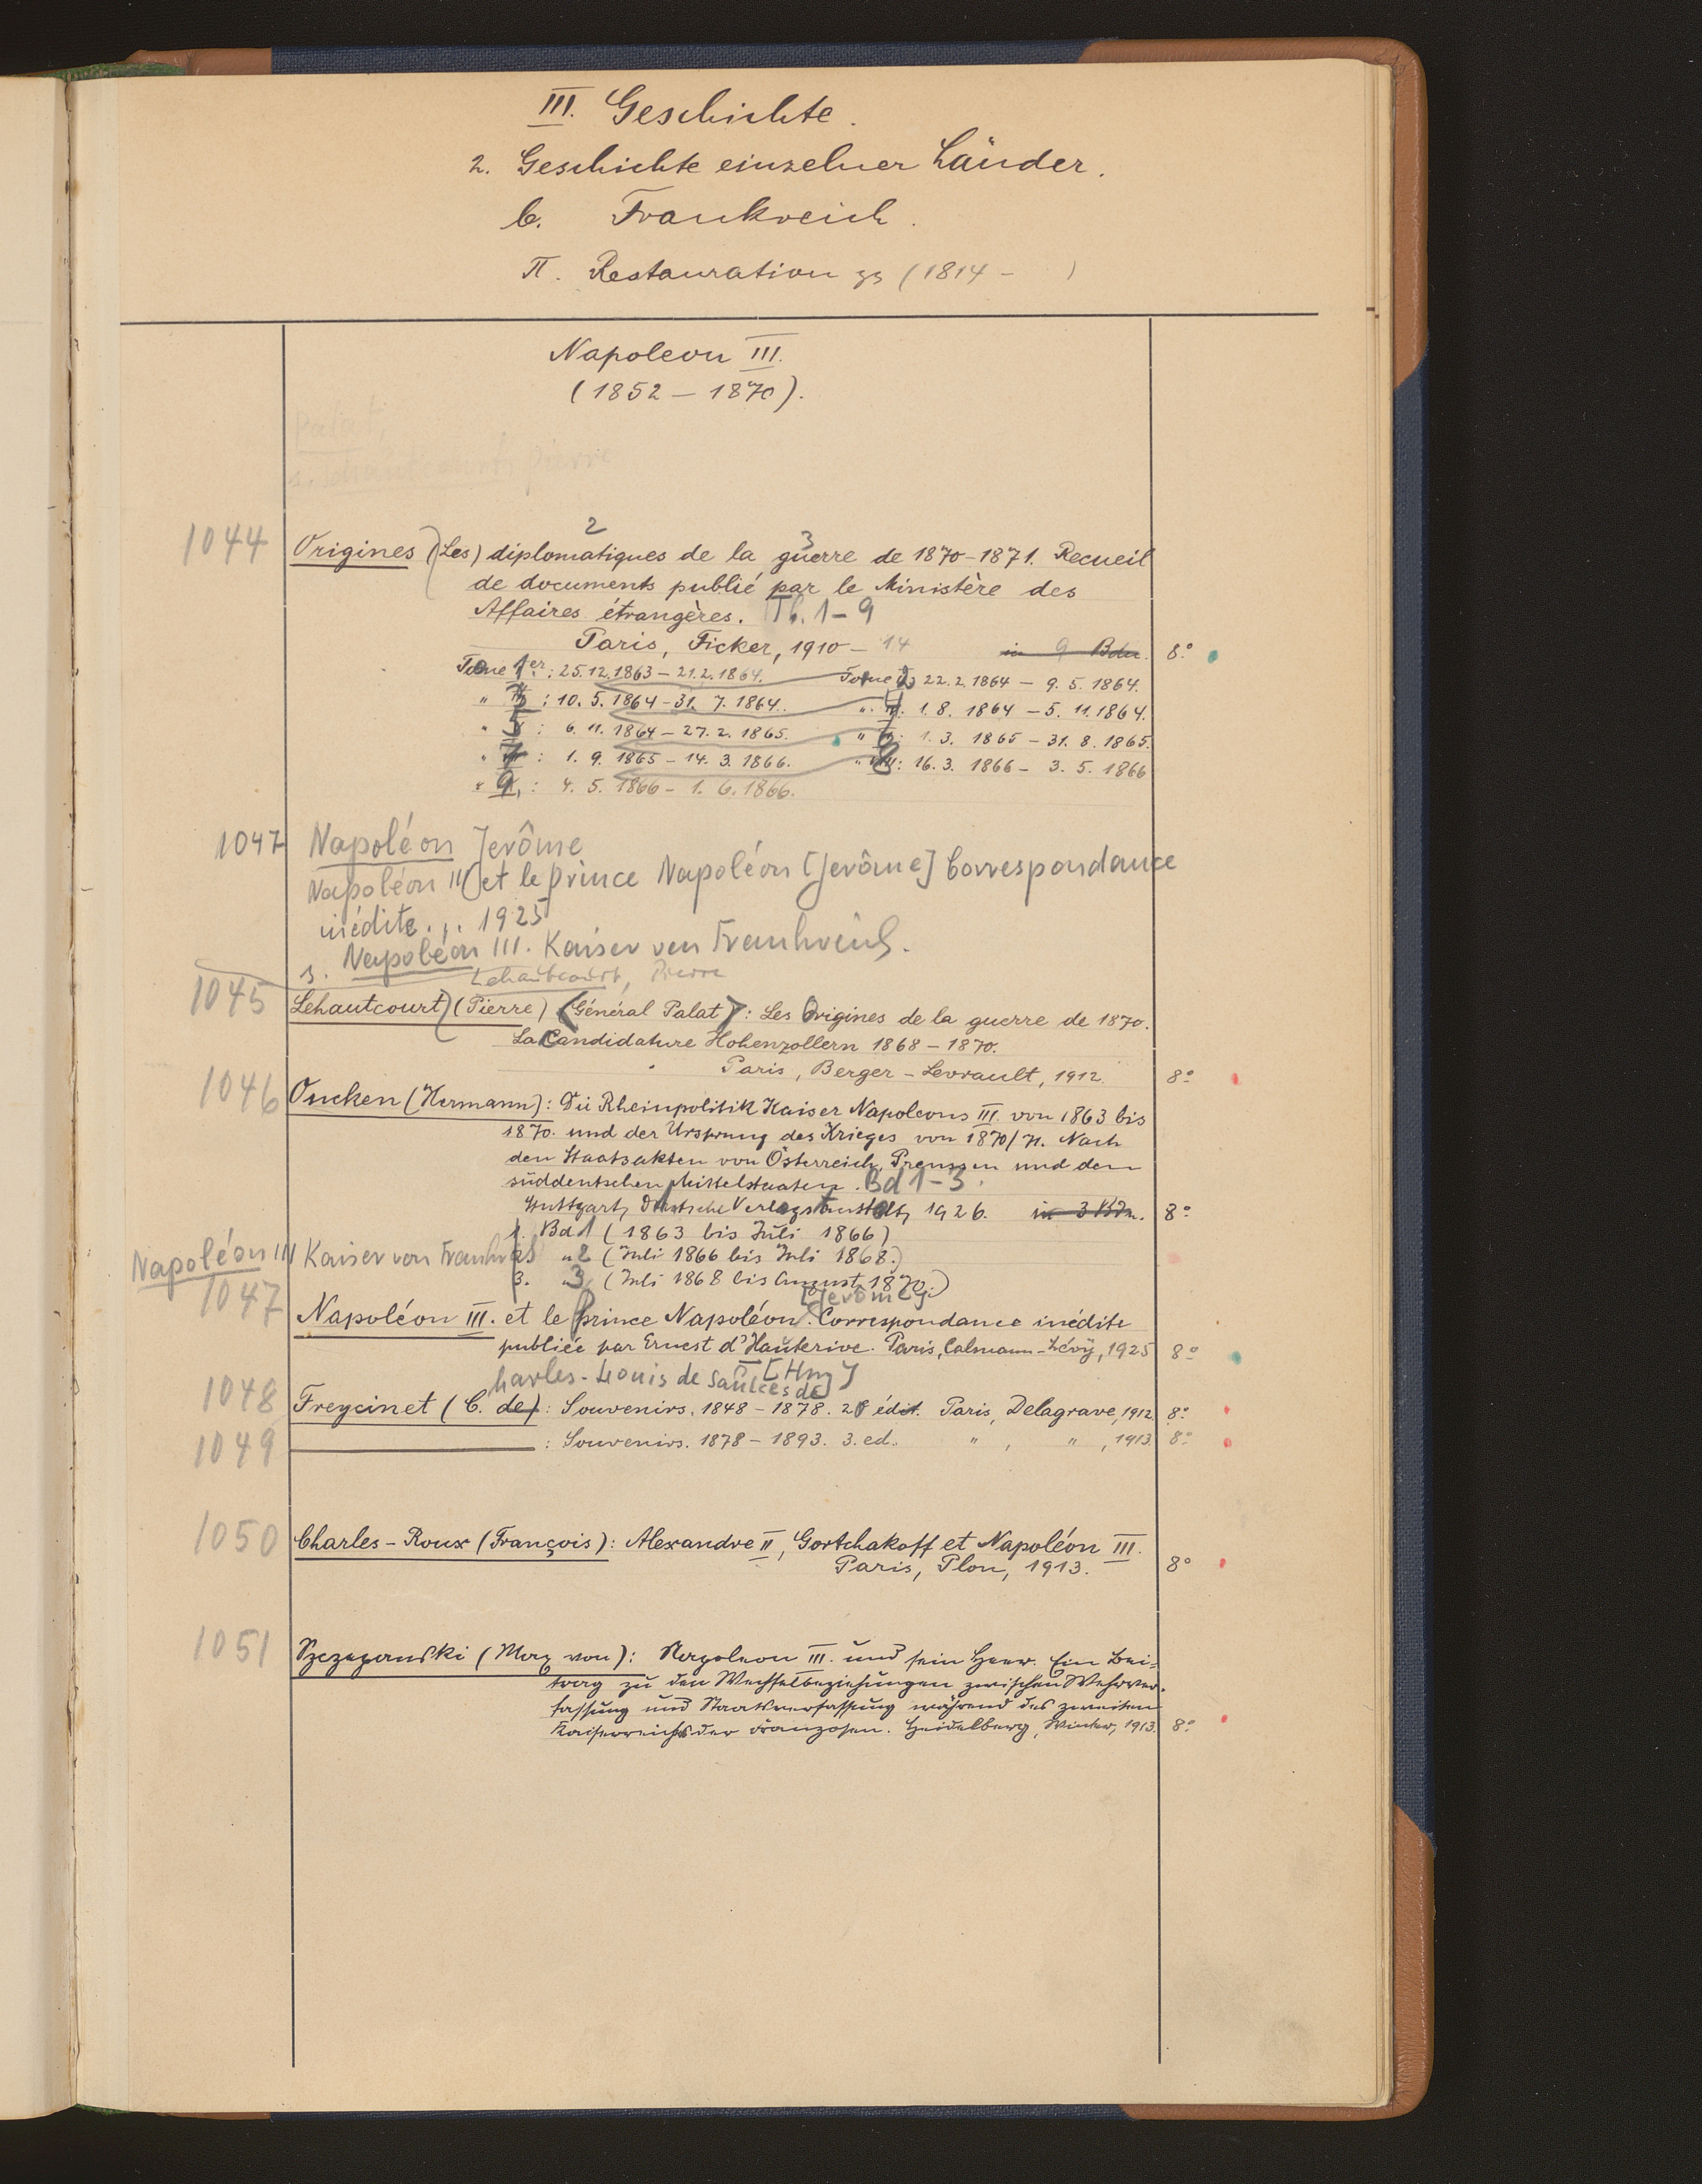 III. Geschichte.
2. Geschichte einzelner Länder.
b. Frankreich.
π. Restauration (1814 – )
Napoleon III.
(1852 – 1870).
Palat,
s. Lehautcourt, Pierre
1044 Origines (Les) diplomatiques de la guerre de 1870-1871. Recueil
2 3
de documents publié par le Ministère des
Affaires étrangères. 1-9
Paris, Ficker, 1910 – 14 in 9 Bdn. 8°
Tome 1er: 25.12.1863 – 21.2.1864. Tome 2 22.2.1864 – 9.5.1864.
" 3: 10.5.1864 – 31.7.1864. " 4: 1.8.1864 – 5.11.1864.
" 5: 6.11.1864 – 27.2.1865. " 6: 1.3.1865 – 31.8.1865.
" 7: 1.9.1865 – 14.3.1866. " 8: 16.3.1866 – 3.5.1866
" 9: 4.5.1866 – 1.6.1866.
1047 Napoléon Jerôme
Napoléon III et le prince Napoléon [Jerôme] Correspondance
inédite... 1925
s. Napoléon III. Kaiser von Frankreich.
Lehautcourt, Pierre
1045 Lehautcourt (Pierre) (Général Palat): Les Origines de la guerre de 1870.
La Candidature Hohenzollern 1868 – 1870.
Paris, Berger-Levrault, 1912. 8°
1046 Oncken (Hermann): Die Rheinpolitik Kaiser Napoleons III. von 1863 bis
1870. und der Ursprung des Krieges von 1870/71. Nach
den Staatsakten von Österreich, Preussen und den
süddeutschen Mittelstaaten. Bd 1-3.
Stuttgart, Deutsche Verlagsanstalt, 1926. in 3 Bdn. 8°
1. Bd 1 (1863 bis Juli 1866)
Napoléon III Kaiser von Frankr " 2 (Juli 1866 bis Juli 1868.)
3. " 3 (Juli 1868 bis August 1870.)
[Jerôme]
1047 Napoléon III. et le prince Napoléon. Correspondance inédite
publiée par Ernest d'Hauterive. Paris, Calmann-Lévy, 1925 8°
harles-Louis de Saulces de [Hrsg]
1048 Freycinet (C. de): Souvenirs. 1848 – 1878. 2 édit. Paris, Delagrave, 1912. 8°
1049 : Souvenirs. 1878 – 1893. 3. ed. " , " , 1913. 8°
1050 Charles-Roux (François): Alexandre II, Gortchakoff et Napoléon III.
Paris, Plon, 1913. 8°
1051 Szczepanski (Max von): Napoleon III. und sein Heer. Ein Bei-
trag zu den Wechselbeziehungen zwischen Wehrver-
fassung und Staatsverfassung während des zweiten
Kaiserreichs der Franzosen. Heidelberg, Winter, 1913. 8°